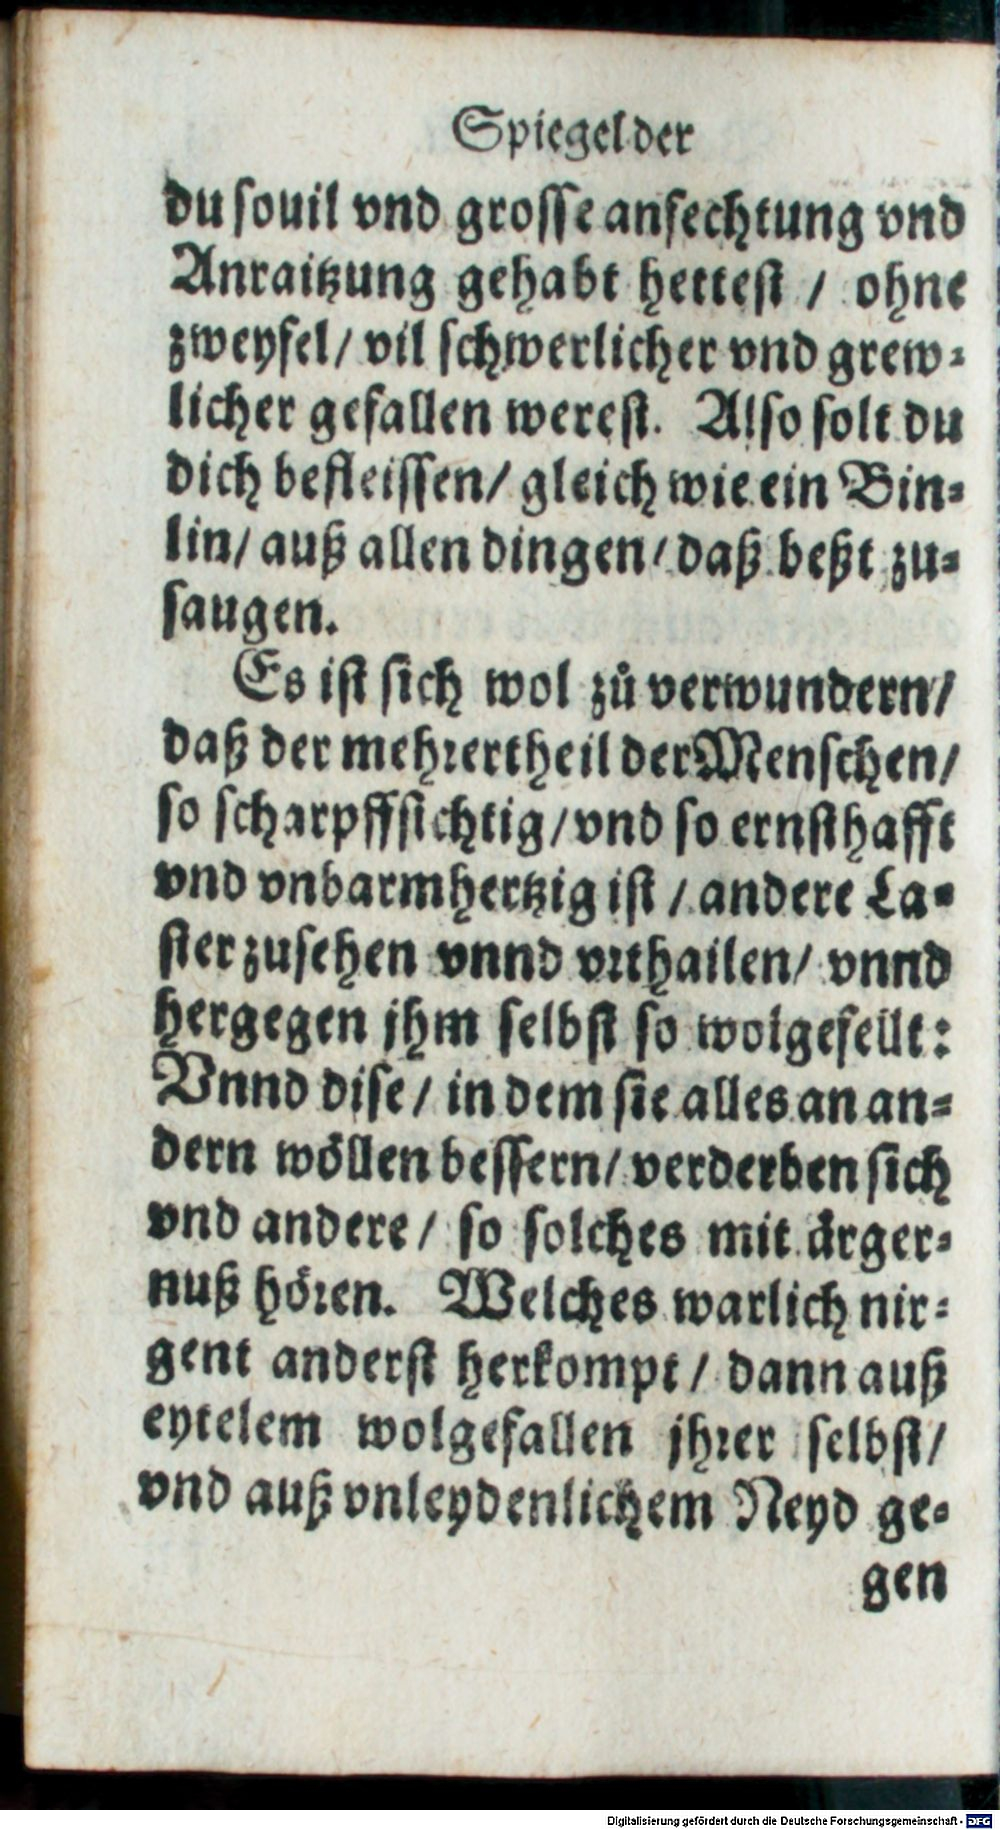 Spiegel der
du souil vnd grosse anfechtung vnd
Anraitzung gehabt hettest / ohne
zweyfel / vil schwerlicher vnd grew-
licher gefallen werest. Also solt du
dich befleissen / gleich wie ein Bin-
lin / auß allen dingen / daß beßt zu-
saugen.
Es ist sich wol zů verwundern /
daß der mehrertheil der Menschen /
so scharpffsichtig / vnd so ernsthafft
vnd vnbarmhertzig ist / andere La-
ster zusehen vnnd vrthailen / vnnd
hergegen jhm selbst so wolgefellt:
Vnnd dise / in dem sie alles an an-
dern wöllen bessern / verderben sich
vnd andere / so solches mit ärger-
nuß hören. Welches warlich nir-
gent anderst herkompt / dann auß
eytelem wolgefallen jhrer selbst /
vnd auß vnleydenlichem Neyd ge-
gen
Digitalisierung gefördert durch die Deutsche Forschungsgemeinschaft - DFG